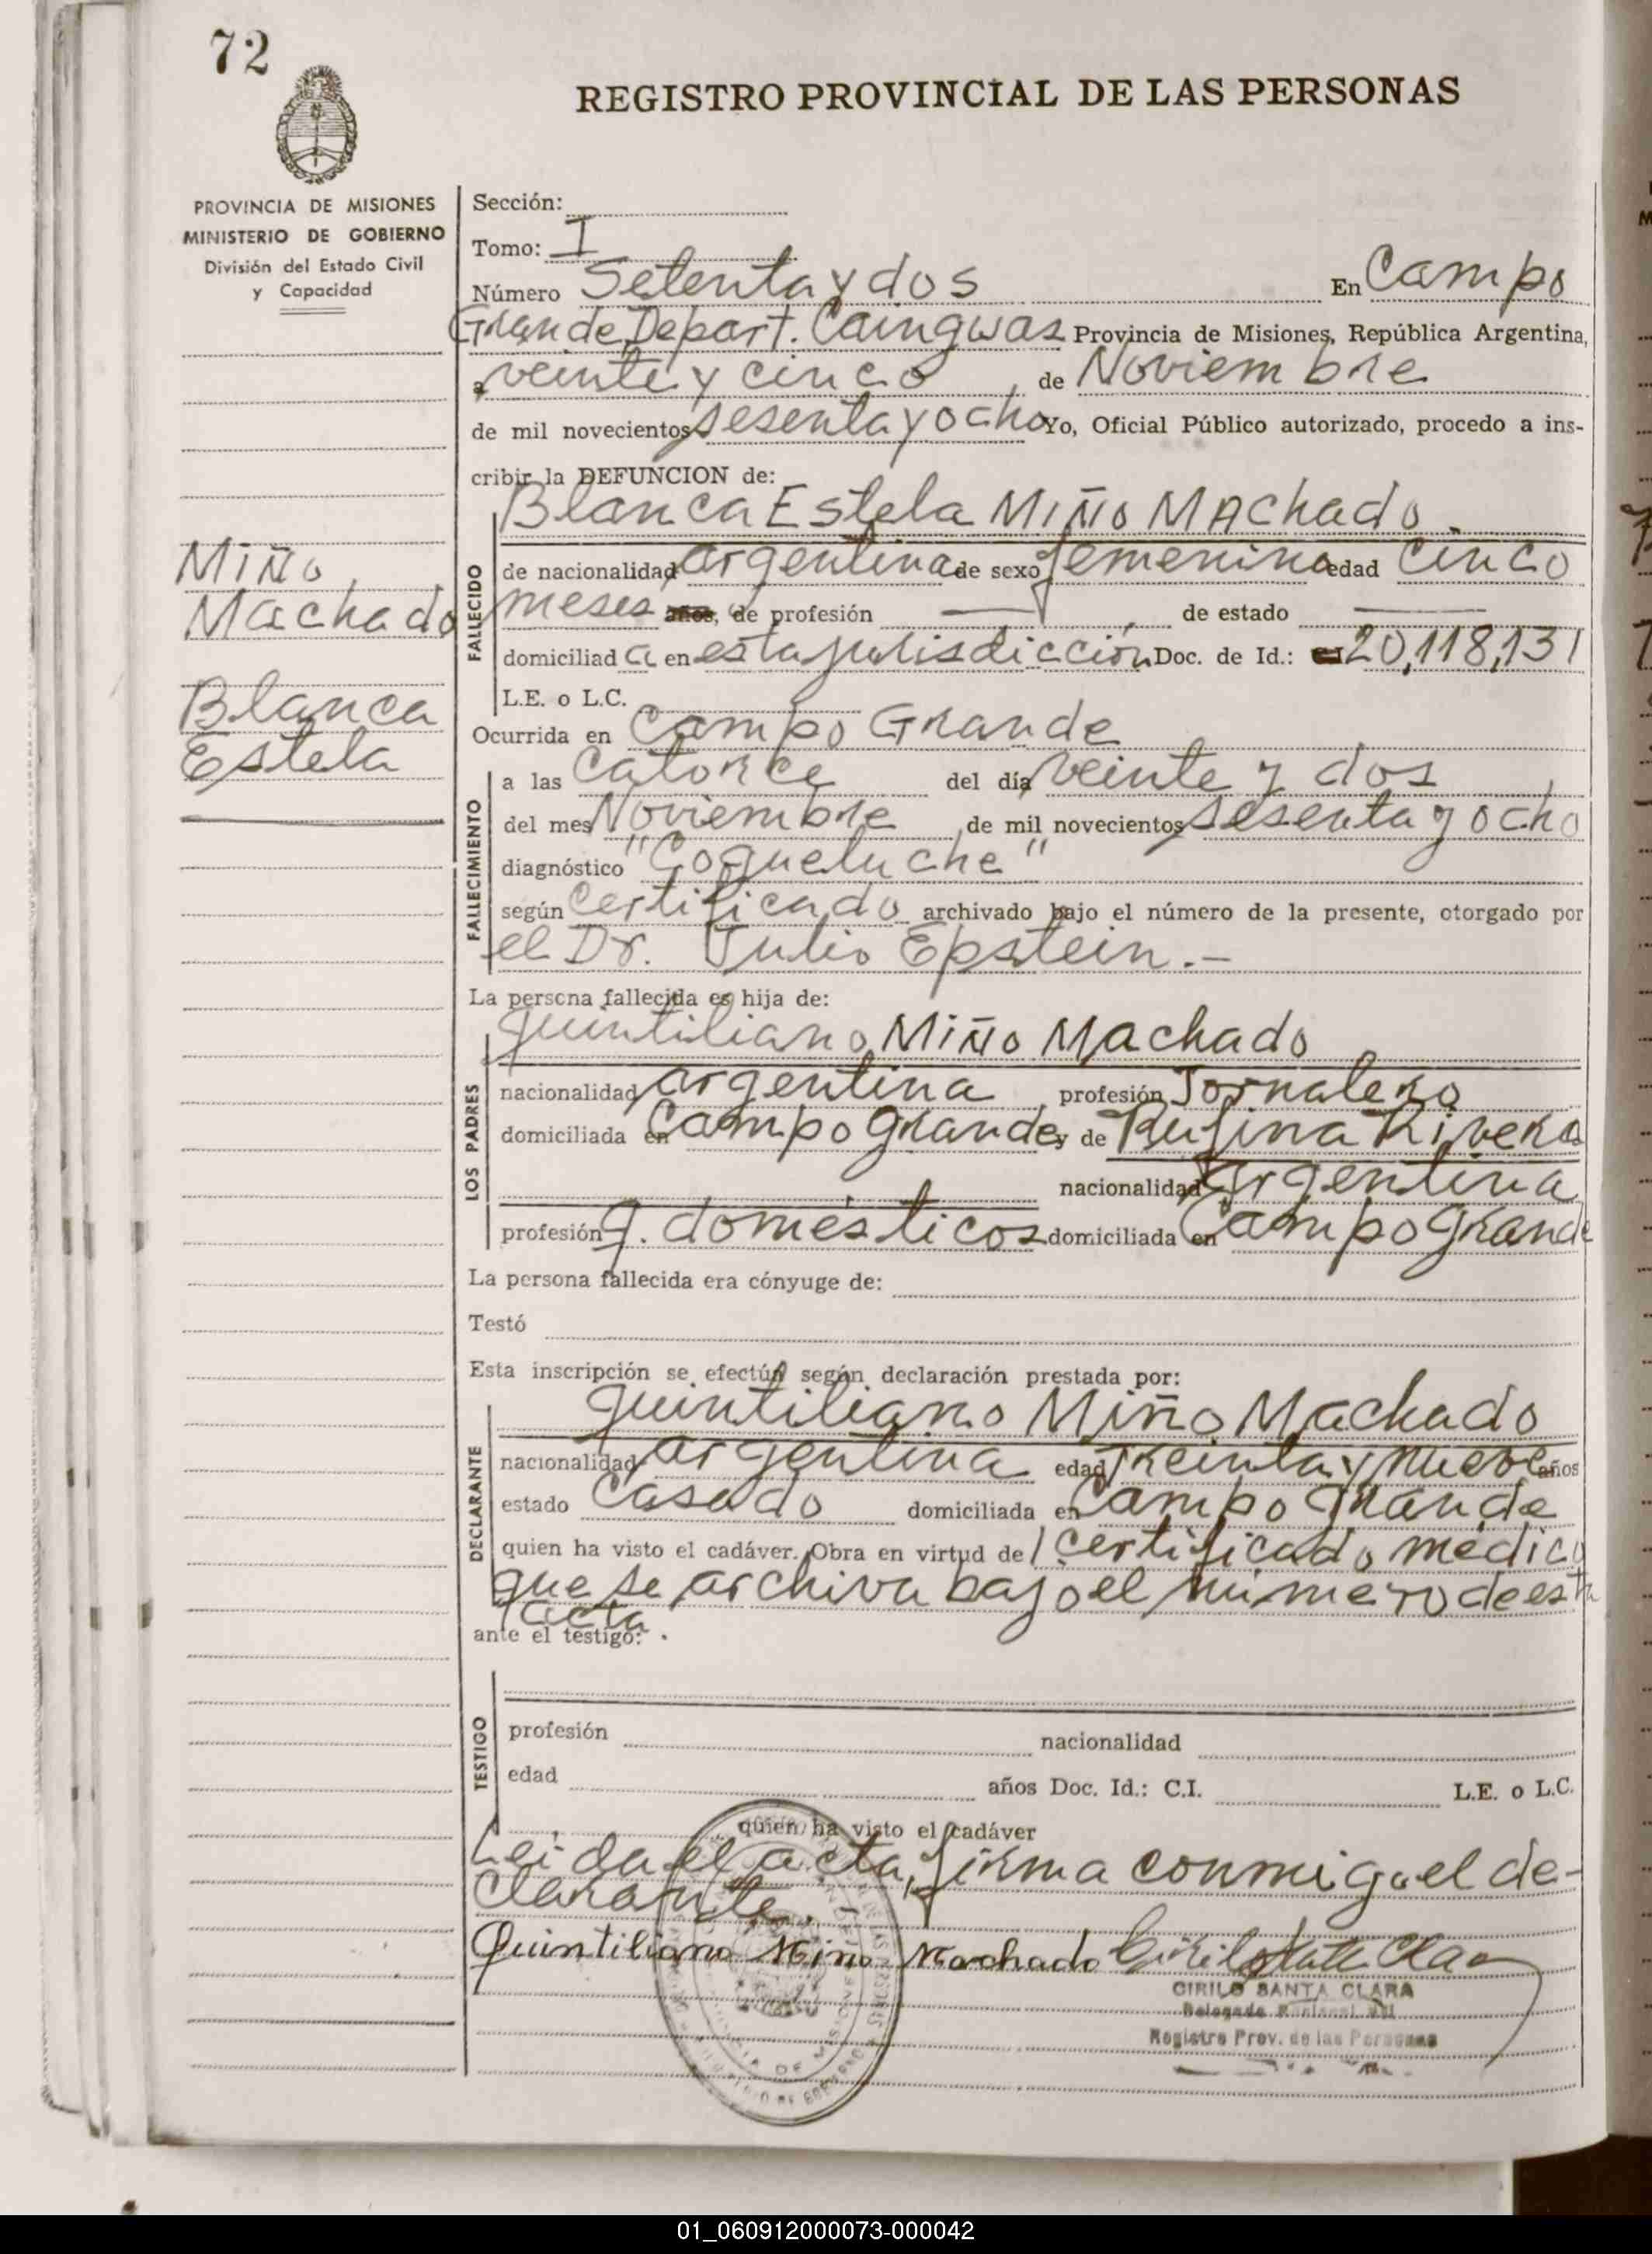 72
REGISTRO PROVINCIAL DE LAS PERSONAS
PROVINCIA DE MISIONES
MINISTERIO DE GOBIERNO
División del Estado Civil
y Capacidad
Miño
Machado
Blanca
Estela
Sección:
Tomo: I
Número Setenta y dos En Campo
Grande Depart. Cainguas Provincia de Misiones, República Argentina,
a veinte y cinco de Noviembre
de mil novecientos sesenta y ocho Yo, Oficial Público autorizado, procedo a ins-
cribir la DEFUNCION de:
Blanca Estela Miño Machado.
FALLECIDO
de nacionalidad argentina de sexo femenino edad cinco
meses años, de profesión — de estado —
domiciliad a en esta jurisdicción Doc. de Id.: 20,118,131
L.E. o L.C.
Ocurrida en Campo Grande
FALLECIMIENTO
a las catorce del día veinte y dos
del mes Noviembre de mil novecientos sesenta y ocho
diagnóstico "Coqueluche"
según certificado archivado bajo el número de la presente, otorgado por
el Dr. Julio Epstein.-
La persona fallecida es hija de:
LOS PADRES
Quintiliano Miño Machado
nacionalidad argentina profesión Jornalero
domiciliada en Campo Grande y de Rufina Rivero
nacionalidad argentina
profesión q. domésticos domiciliada en Campo Grande
La persona fallecida era cónyuge de:
Testó
Esta inscripción se efectúa según declaración prestada por:
DECLARANTE
Quintiliano Miño Machado
nacionalidad argentina edad Treinta y nueve años
estado Casado domiciliada en Campo Grande
quien ha visto el cadáver. Obra en virtud del certificado médico
que se archiva bajo el número de esta
acta
ante el testigo:
TESTIGO
profesión nacionalidad
edad años Doc. Id.: C.I. L.E. o L.C.
quien ha visto el cadáver
Leida el acta, firma conmigo el de-
clarante.
Quintiliano Mino Machado Cirilo Santa Clara
CIRILO SANTA CLARA
Registro Prov. de las Personas
01_060912000073-000042